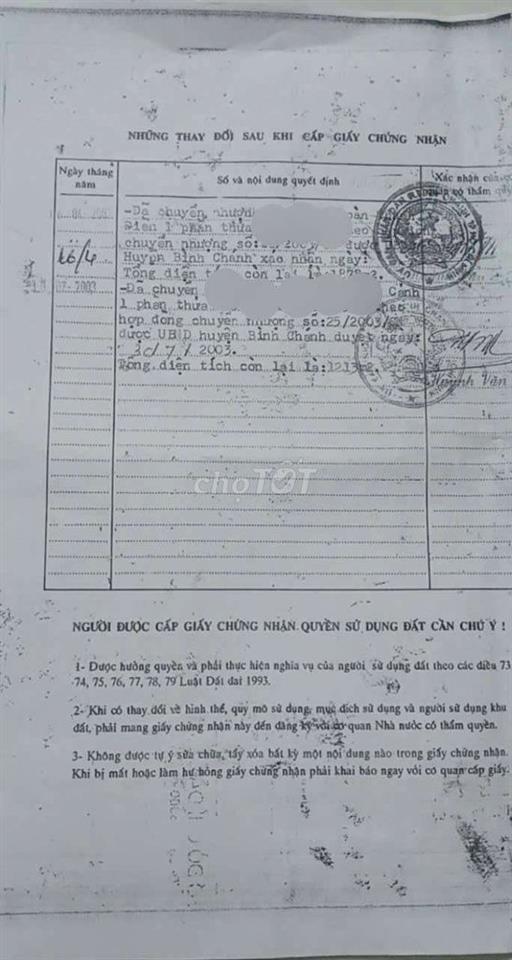 NHỮNG THAY ĐỔI SAU KHI CẤP GIẤY CHỨNG NHẬN
Ngày tháng năm
Số và nội dung quyết định
Xác nhận của
có thẩm
-Dã chuyển nhượ
Điền 1 phần thửa
chuyển nhượng số: được
16/4
Huyện Bình Chánh xác nhận ngày:
Tổng diện còn lại là:
07-2003
-Dã chuyển Cảnh
1 phần thưa
hợp đồng chuyển nhượng số:25/2003/
được UBND huyện Bình Chánh duyệt ngày:
/ 7 / 2003.
Tổng diện tích còn lại là:1213m2
Huỳnh Văn
chợTỐT
NGƯỜI ĐƯỢC CẤP GIẤY CHỨNG NHẬN QUYỀN SỬ DỤNG ĐẤT CẦN CHÚ Ý !
1- Được hưởng quyền và phải thực hiện nghĩa vụ của người sử dụng đất theo các điều 73
74, 75, 76, 77, 78, 79 Luật Đất đai 1993.
2- Khi có thay đổi về hình thể, quy mô sử dụng, mục đích sử dụng và người sử dụng khu
đất, phải mang giấy chứng nhận này đến đăng ký với cơ quan Nhà nước có thẩm quyền.
3- Không được tự ý sửa chữa, tẩy xóa bất kỳ một nội dung nào trong giấy chứng nhận.
Khi bị mất hoặc làm hư hỏng giấy chứng nhận phải khai báo ngay với cơ quan cấp giấy.